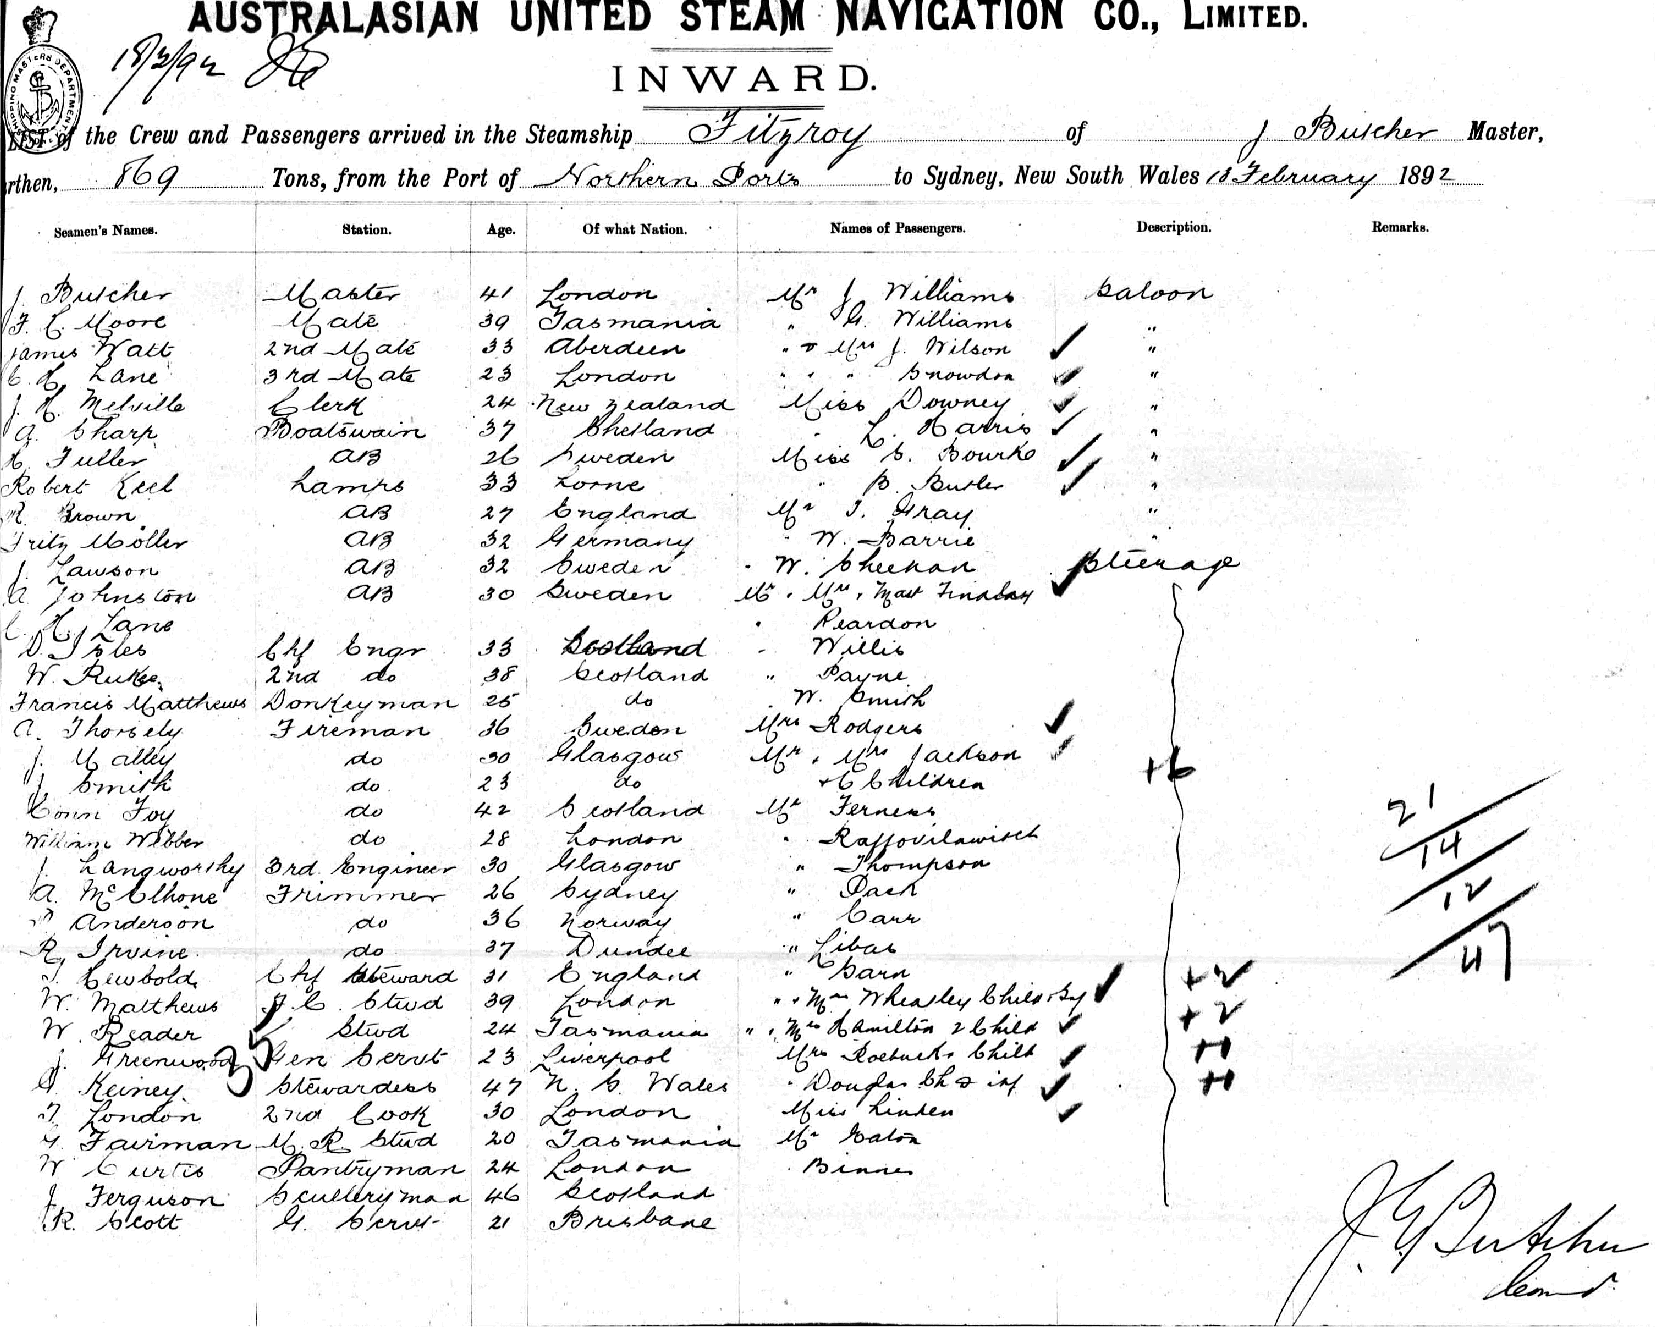 AUSTRALASIAN UNITED STEAM NAVIGATION CO., LIMITED.
18/2/92
INWARD.
LIST of the Crew and Passengers arrived in the Steamship Fitzroy of J Butcher Master,
rthen, 869 Tons, from the Port of Northern Ports to Sydney, New South Wales 18 February 1892
Seamen's Names. Station. Age. Of what Nation. Names of Passengers. Description. Remarks.
J. Butcher Master 41 London Mr J. Williams Saloon
F. C. Moore Mate 39 Tasmania " G. Williams "
James Watt 2nd Mate 33 Aberdeen " & Mrs J. Wilson "
C. H. Lane 3rd Mate 23 London " " " Snowdon "
J. H. Melville Clerk 24 New Zealand Miss Downey "
A. Sharp Boatswain 37 Shetland " L. Harris "
H. Fuller AB 26 Sweden Miss S. Bourke "
Robert Keel Lamps 33 Lorne " B. Butler "
R. Brown AB 27 England Mr T. Gray "
Fritz Möller AB 32 Germany " W. Barrie "
J. Lawson AB 32 Sweden " W. Sheehan Steerage
A. Johnston AB 30 Sweden Mr & Mrs & Mast Findlay
C. H. Lane " Reardon
D. Isles Chf Engr 33 Scotland " Willis
W. 2nd do 38 Scotland " Payne
Francis Matthews Donkeyman 25 do W. Smith
A. Thorsely Fireman 36 Sweden Mrs Rodgers
J. Malley do 30 Glasgow Mr & Mrs Jackson
J. Smith do 23 do + 6 Children +6
Conn Foy do 42 Scotland Mr Ferness
William Webber do 28 London "
J. Langworthy 3rd Engineer 30 Glasgow " Thompson
A. McElhone Trimmer 26 Sydney "
Anderson do 36 Norway " Carr
R. Irvine do 37 Dundee " Libas
T. Newbold Chf Steward 31 England " Sarn
W. Matthews F. C. Stwd 39 London " & Mrs Wheatley Child & By +2
W. Reader Stwd 24 Tasmania " & Mrs Hamilton 2 Child +2
J. Greenwood Gen Servt 23 Liverpool Mrs Roebucks Child +1
Keiney Stewardess 47 N. S. Wales " Douglas Ch & inf +1
T. London 2nd Cook 30 London Miss Linden
Fairman M. R. Stwd 20 Tasmania Mr Eaton
W Curtis Pantryman 24 London " Binnes
J. Ferguson Sculleryman 46 Scotland
R. Scott G. Servt 21 Brisbane
21
14
12
47
J. G. Butcher